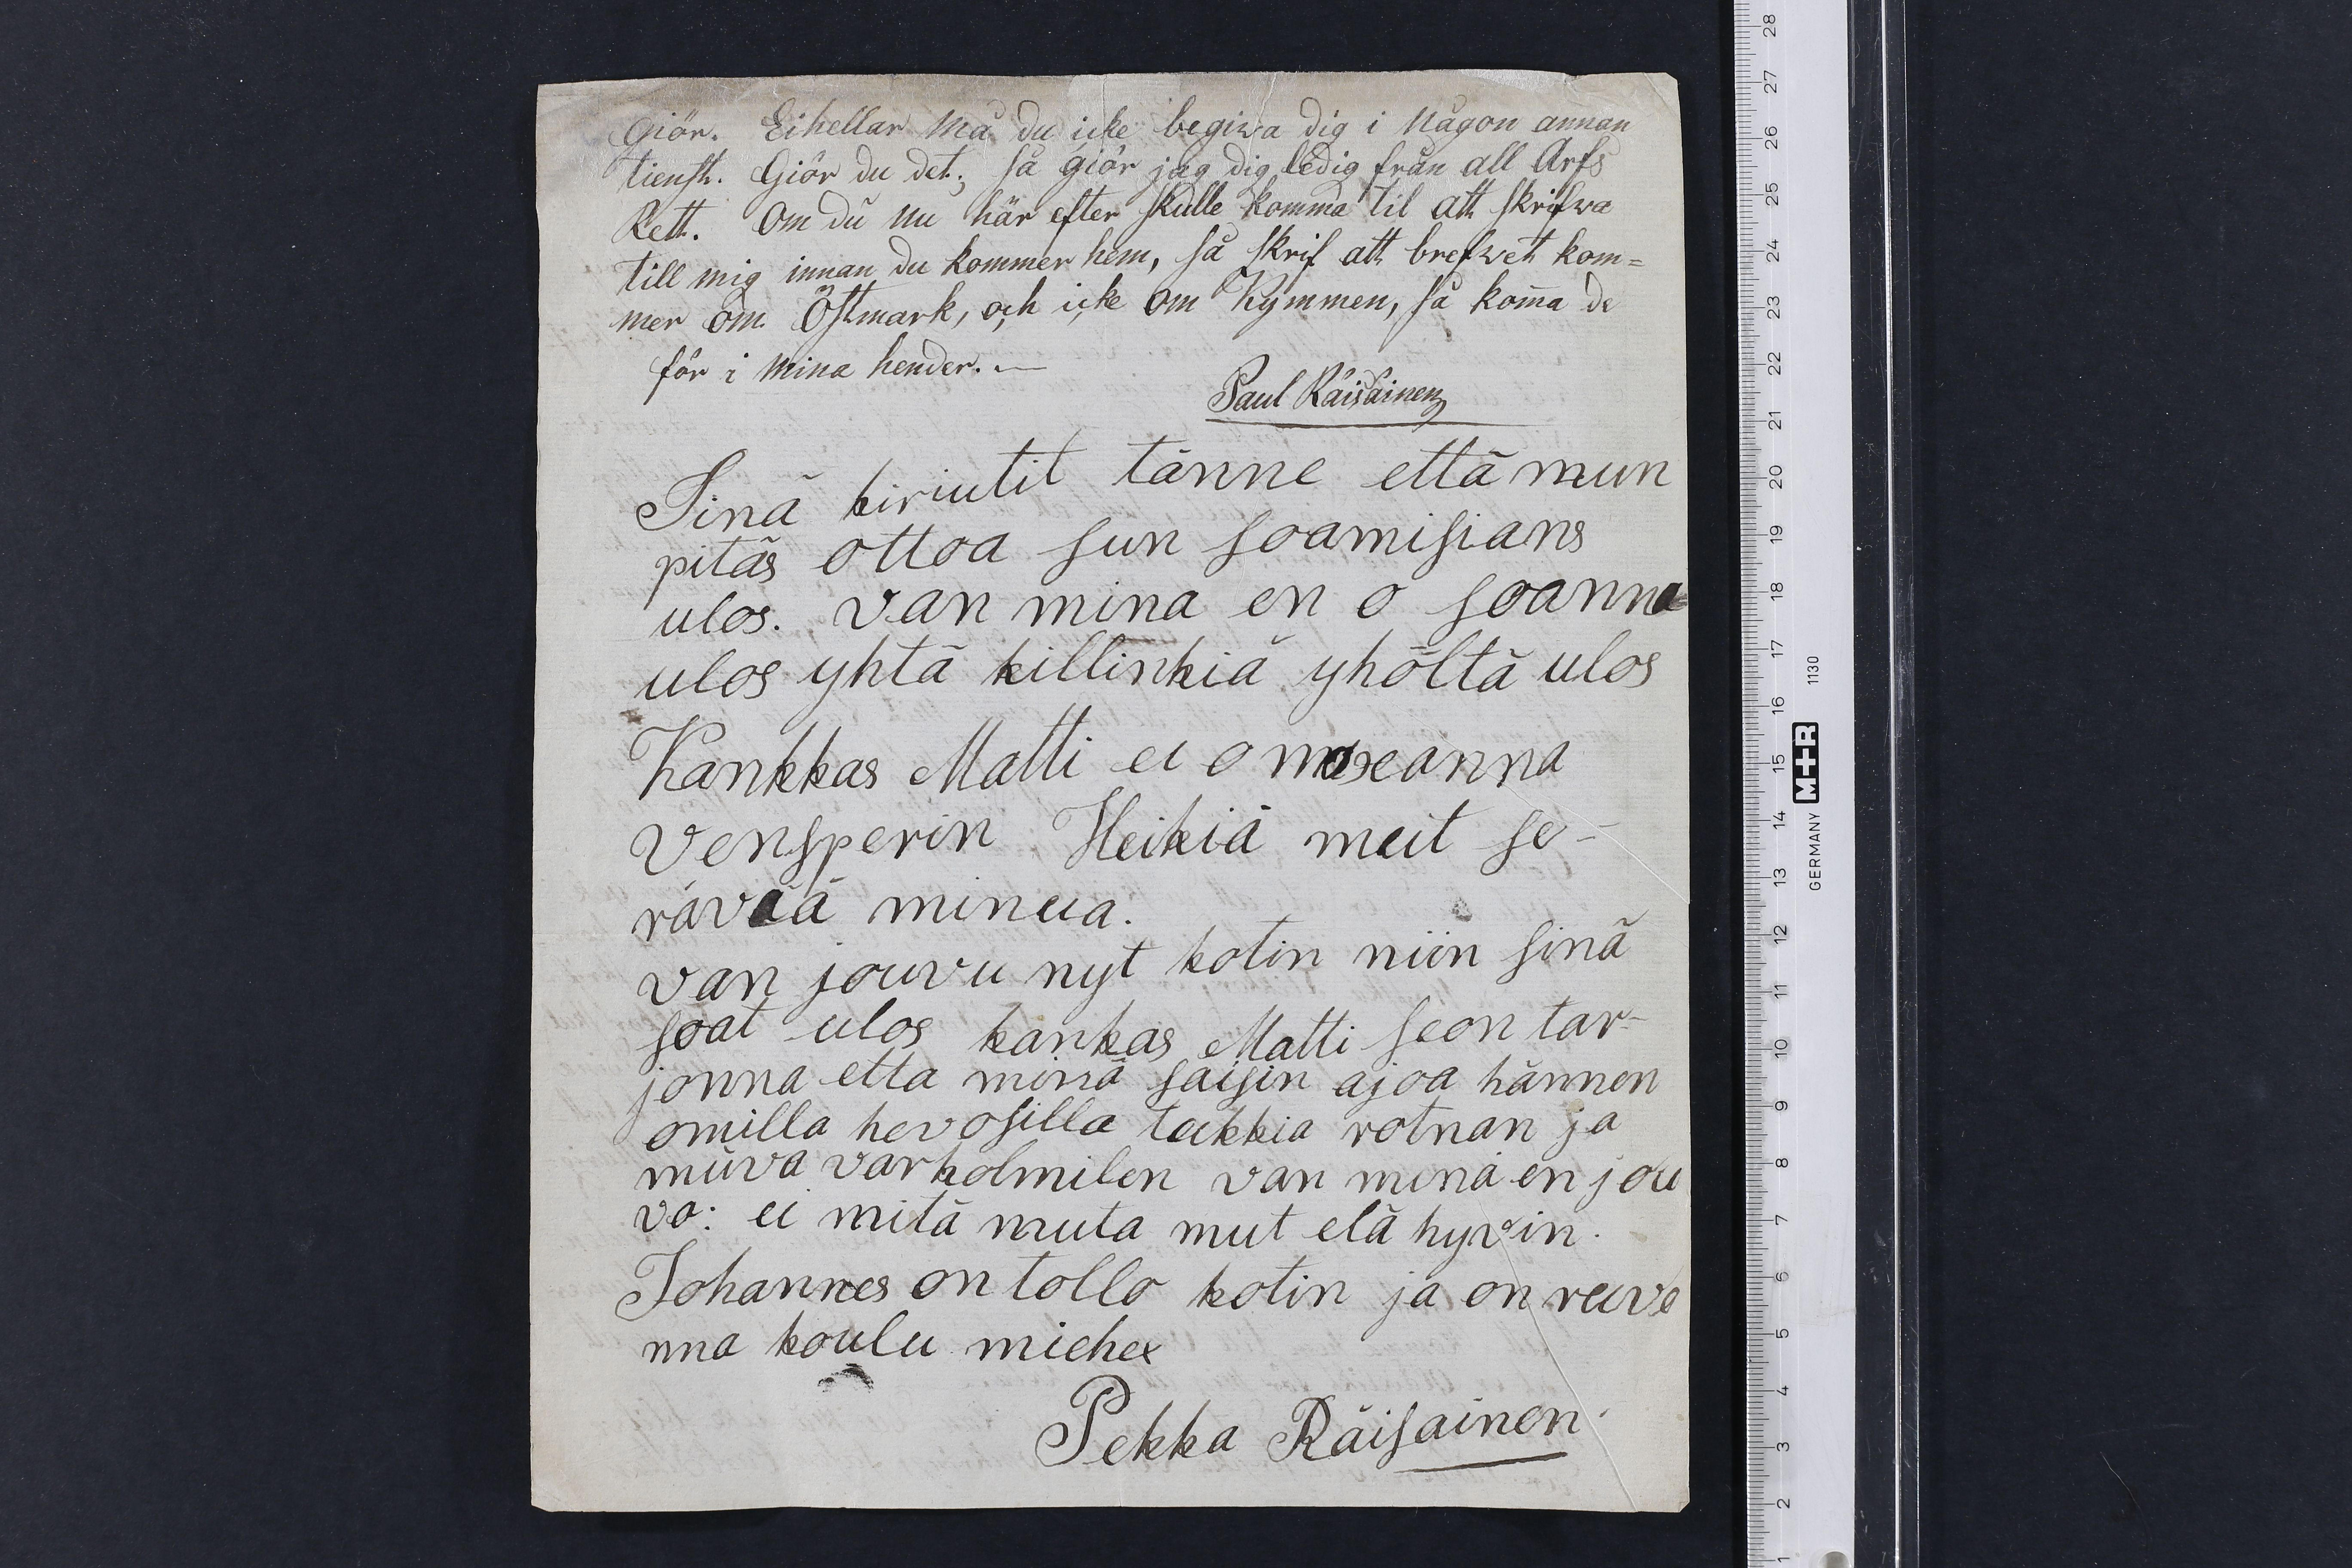 giör. Eihellar må du icke begiwa dig i någon annan
tienst. Giör du det; så giör jag dig ledig från all Arfs
Rett. Om du nu här efter skulle komma til att skrifwa
till mig innan du kommer hem, så skrif att brefwet kom=
mer om Östmark, och icke om Kymmen, så kom̄a de
för i mina hender. —
Paul Räisäinen
Sinä kiriutit tänne että mun
pitäs ottoa sun soamisians
ulos. van mina en o soanna
ulos yhtä killinkiä yhöltä ulos
Kankkas Matti ei o
Vensperin Heikiä meit se-
rävää minua.
van jouvu nyt kotin niin sinä
soat ulos kankas Matti seon tar-
jonna etta minä saisin ajoa hännen
omilla hevosilla takkia rotnan ja
müva varholmilen van minä en jou
vo: ei mitä muta mut elä hyvin.
Johannes on tollo kotin ja on ruve
nna koulu miehex
Pekka Räisainen
28
27
26
25
24
23
22
21
20
19
18
17
16
15
14
13
12
11
10
9
8
7
6
5
4
3
2
1
GERMANY M+R 1130